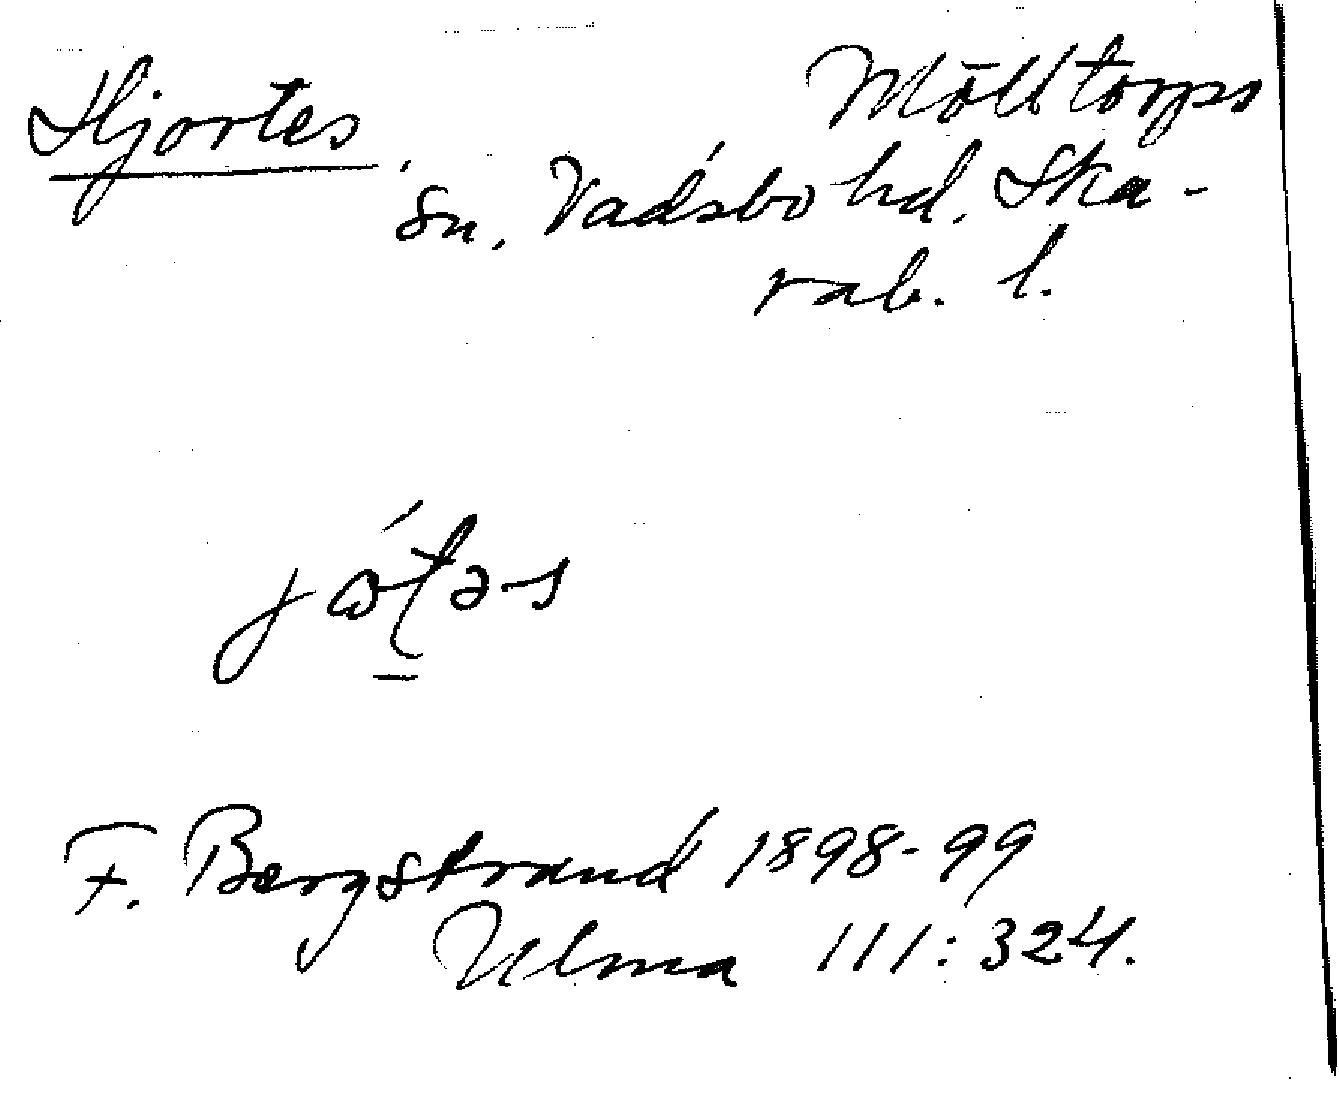 Hjortes. Mölltorps
sn. Vadsbo hd. Ska-
rab. l.
F. Bergstrand 1898-99
Ulma 111:324.